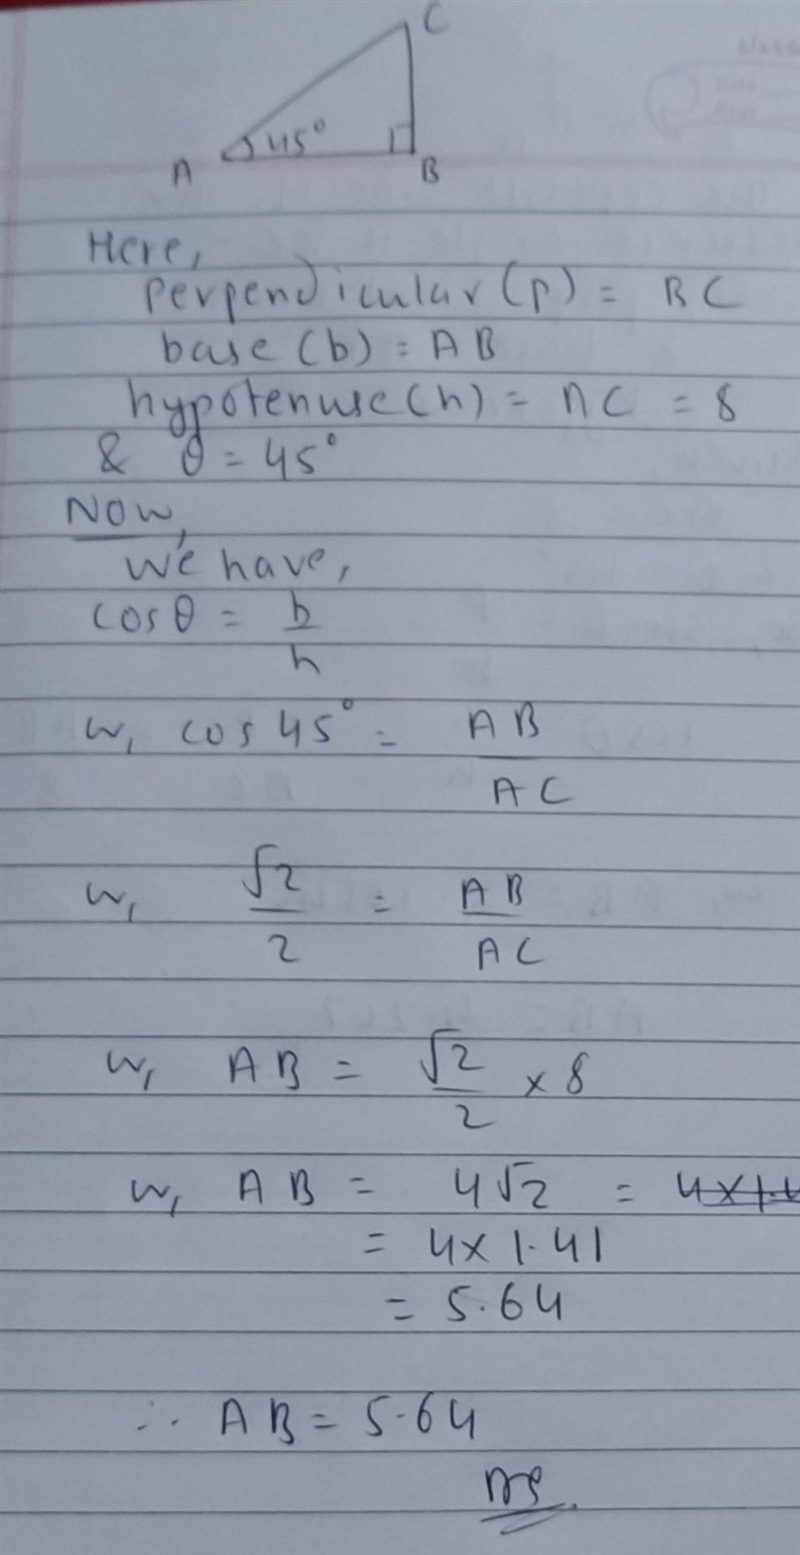 C
45°
A
B
Here,
perpendicular (p) = BC
base (b) = AB
hypotenuse (h) = AC = 8
& θ = 45°
Now,
We have,
cosθ = b/h
or, cos 45° = AB/AC
or, √2/2 = AB/AC
or, AB = √2/2 × 8
or, AB = 4√2 = 4×1.4
= 4×1.41
= 5.64
∴ AB = 5.64
Ans.